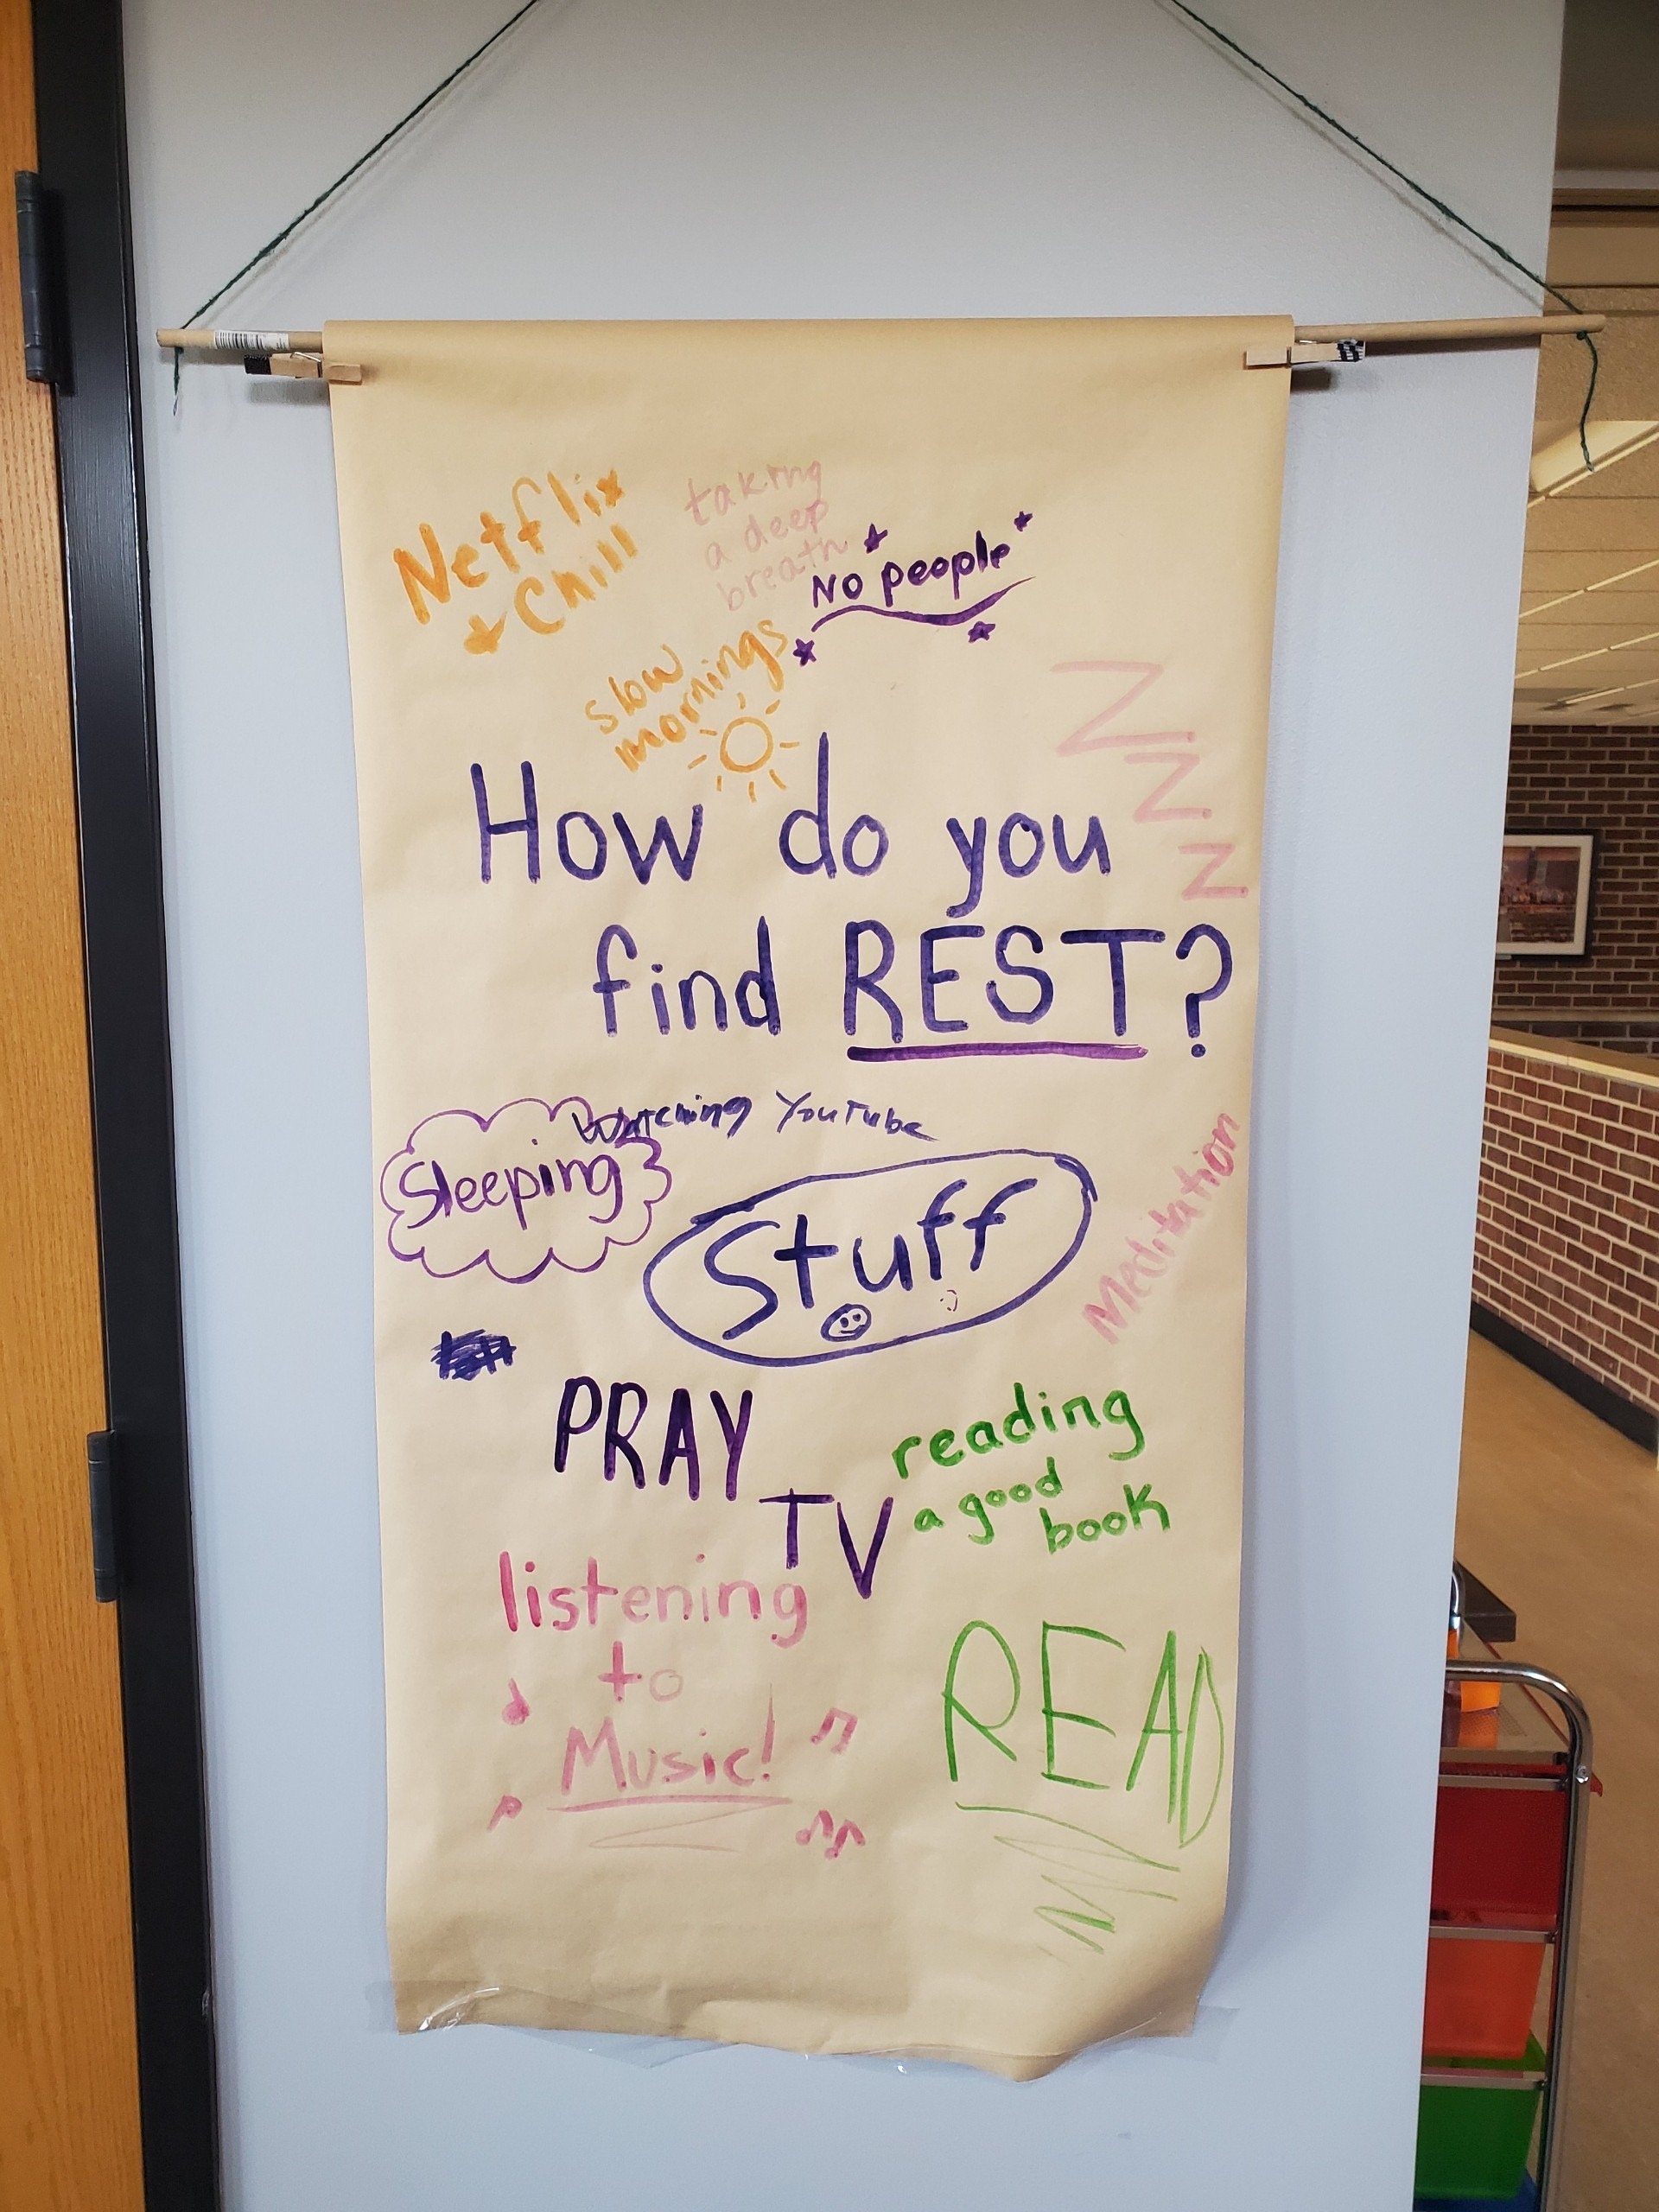 Netflix
+ Chill
taking
a deep
breath
No people
slow
mornings
Z
Z
Z
How do you
find REST?
Watching YouTube
Sleeping
Stuff
Meditation
PRAY
reading
a good
book
TV
listening
to
Music!
READ